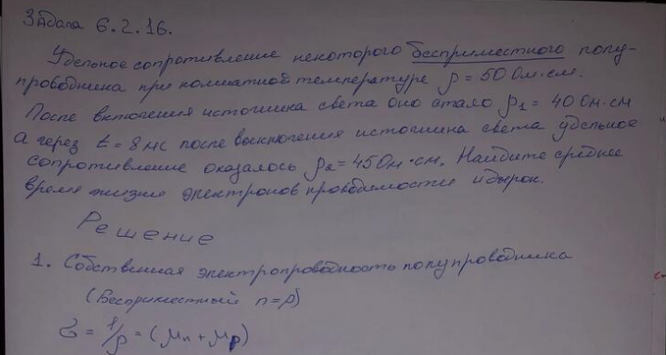 Задача 6.2.16.
Удельное сопротивление некоторого бесприместного полу-
проводника при комнатной температуре ρ = 50 Ом·см.
После включения источника света оно стало ρ₁ = 40 Ом·см
А через t = 8 мс после выключения источника света удельное
сопротивление оказалось ρ₂ = 45 Ом·см. Найдите среднее
время жизни электронов проводимости и дырок.
Решение
1. Собственная электропроводность полупроводника
(Бесприместный n = p)
σ = 1/ρ = (μn + μp)